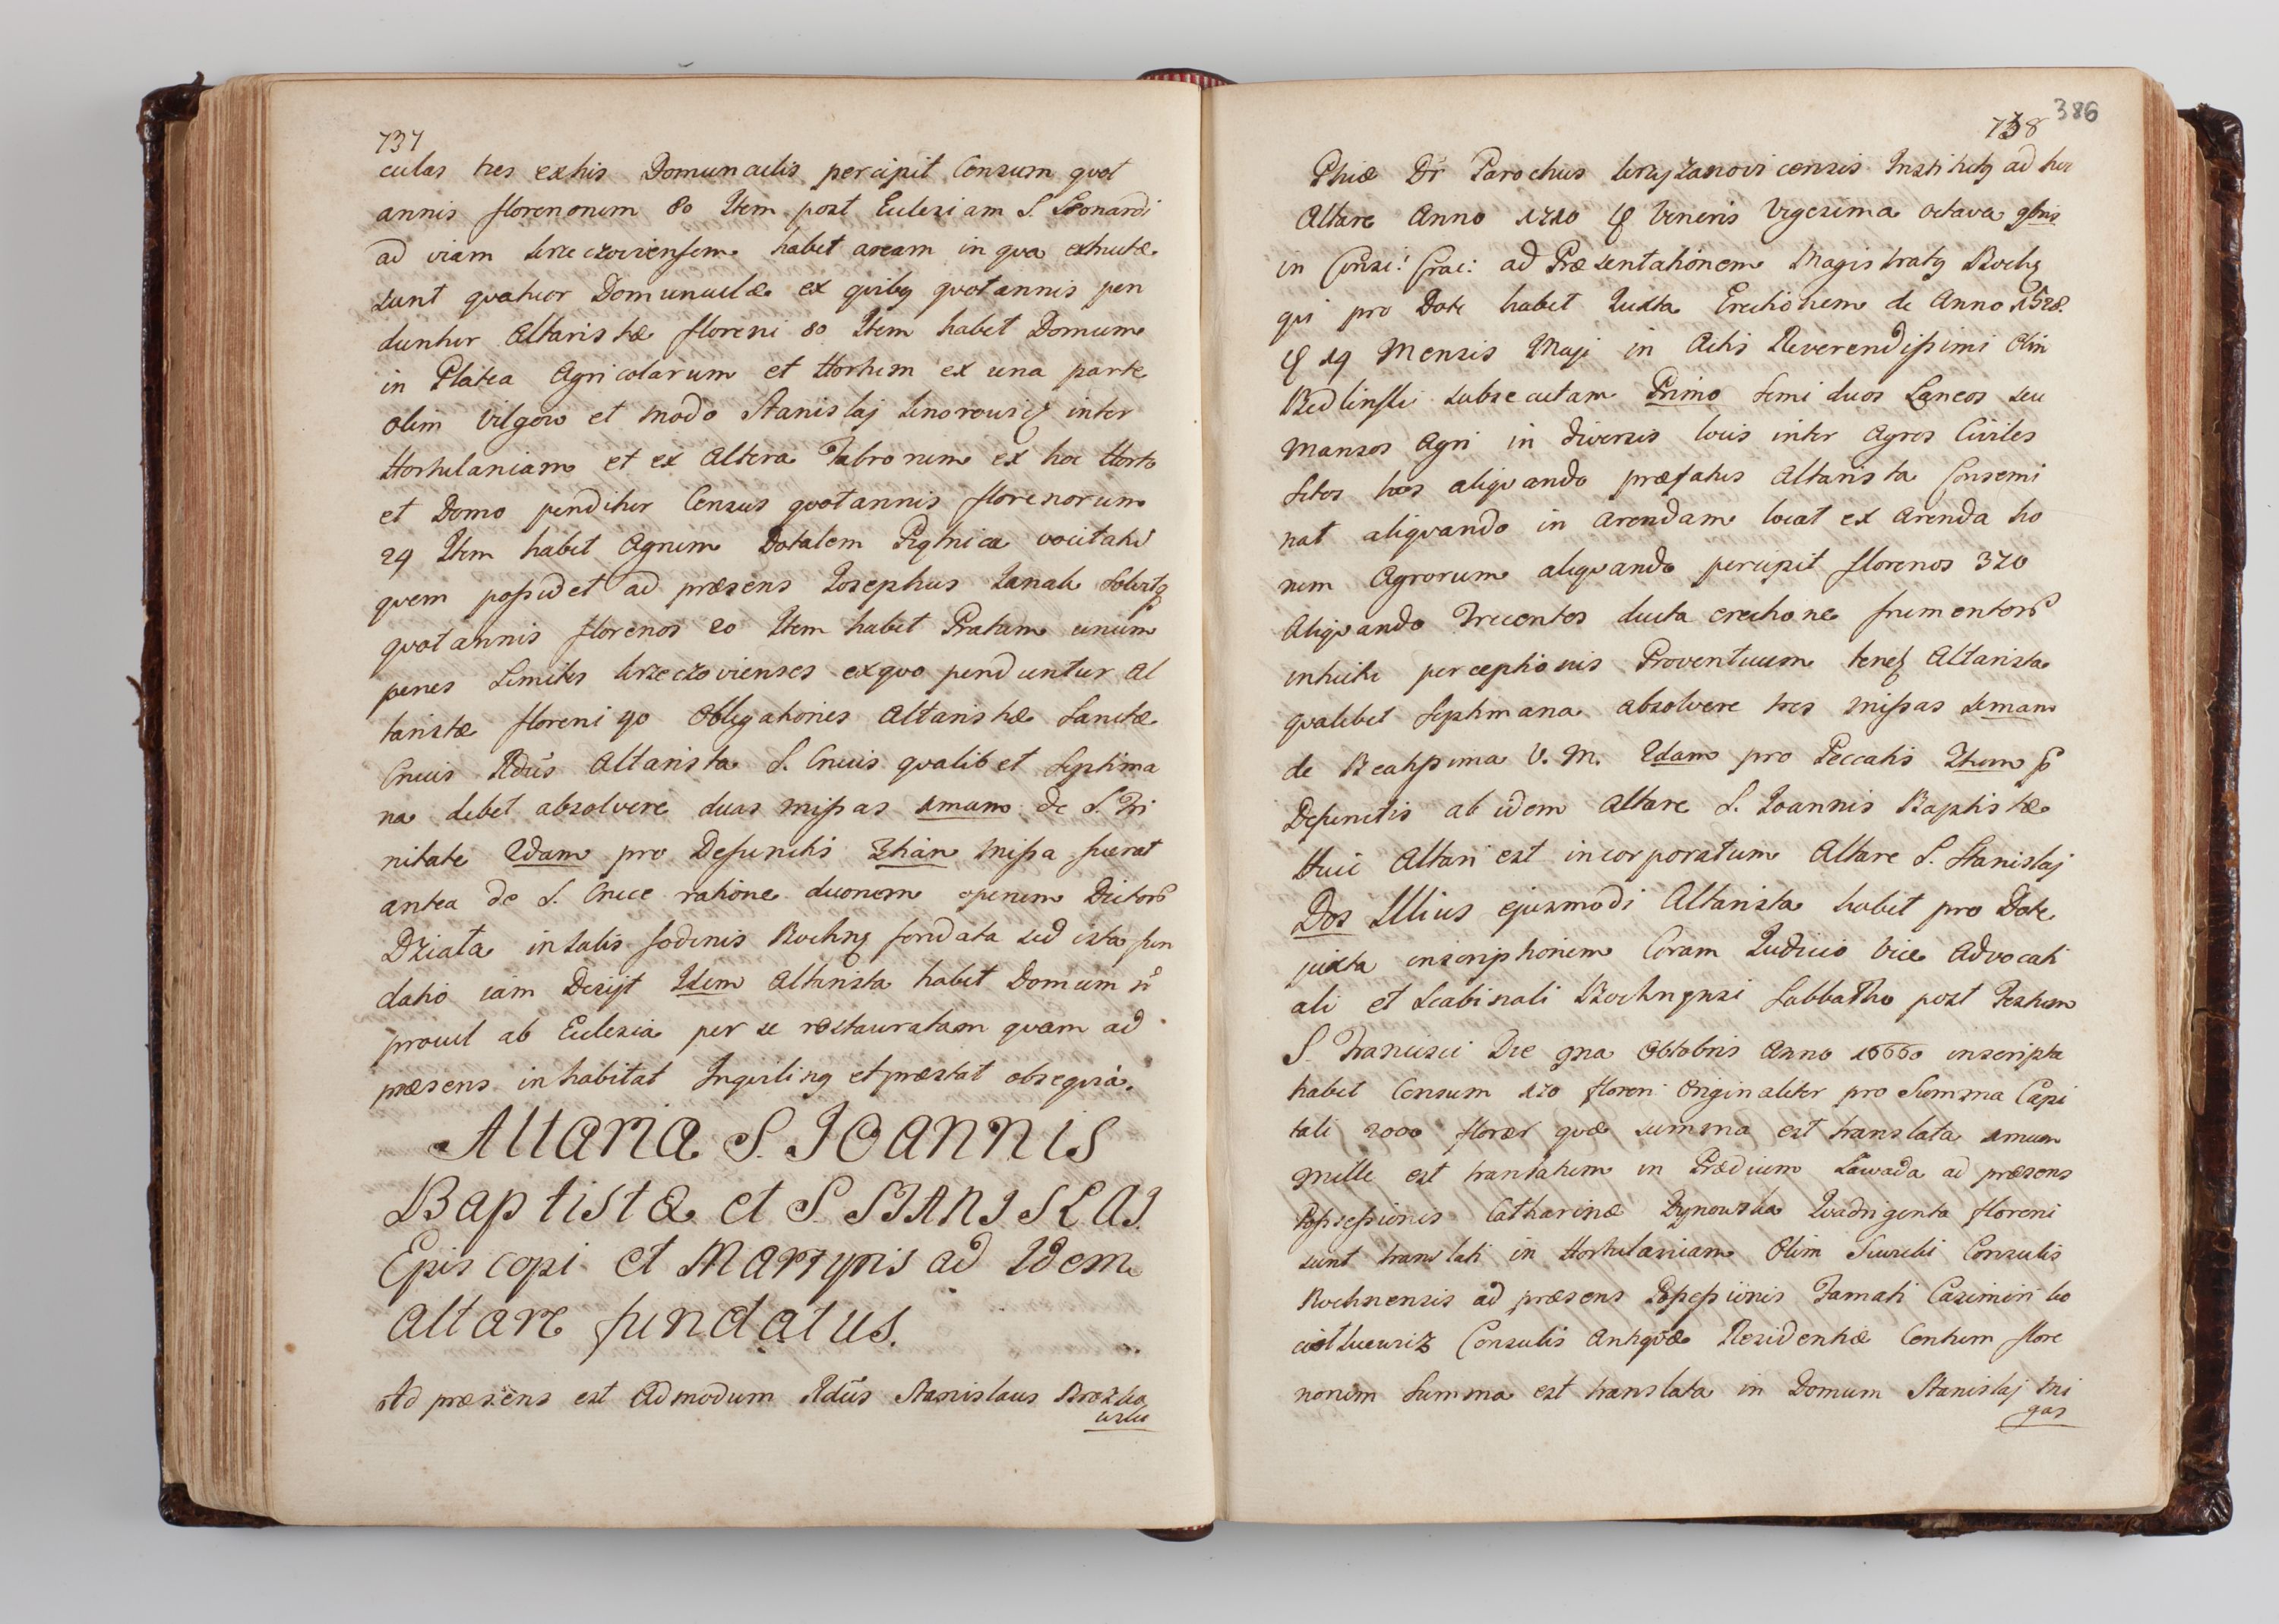 737
culas tres exhis Domunculis percipit Censum quot
annis florenorum 80 Item post Eulesiam S. Leonardi
ad viam krzeczoviensem habet aream in qva extructæ
sunt quatuor Domunculæ ex quibq quotannis pen
duntur Altaristæ floreni 80 Item habet Domum
in Platea Agricolarum et Hortum ex una parte
olim Vilgow et modo Stanislaj inter
Hortulaniam et ex Altera Fabrorum ex hoc Horto
et Domo penditur Census quotannis florenorum
24 Item habet Agrum Dotalem vocitatū
quem possidet ad præsens Josephus Janak
quotannis florenos 20 Item habet Pratum unum
penes Limites krzeczovienses exquo penduntur Al
taristæ floreni 40 Obligationes Altaristæ Sanctæ
Crucis Rdūs Altarista S. Crucis qvalibet Septima
na debet absolvere duas missas 1mam de S. Tri
nitate 2dam pro Defunctis 3tiam missa fuerat
antea de S. Cruce ratione duonem openem Dictorū
Dziata insalis fodinis Bochnq fondata sed ista fun
datio iam Desijt Item Altarista habet Domum ñ
procul ab Eulesia per se restauratam quam ad
præsens inhabitat Inquilinq et præstat obsequia.
Altaria S. JOANNIS
Baptistæ et S. STANISLAI.
Episcopi et Martyris ad Idem
altare fundatus.
Ad præsens est Admodum Rdūs Stanislaus Brozko
wski
386
738
Phiæ Dr Parochus krzyzanovicensis Institutq ad hoc
Altare Anno 1710 Veneris Vigesima octava 9bris
in Consi: Crac: ad Præsentationem Magistratq Bochq
qui pro Dote habet Juxta Erectionem de Anno 1528.
19 Mensis Maji in Actis Reverendissimi Olim
Bedlinski subsecutam Primo Semi duos Laneos seu
Mansos Agri in diversis locis inter Agros Civiles
sitos hos aliqvando præfatus Altarista Consemi
nat aliqvando in arendam locat ex arenda ho
rum Agrorum aliquando percipit florenos 320
Aliqvando Trecentos ducta erectione frumentorū
intuitu perceptionis Proventuum Altarista
qvalibet Septimana absolvere tres missas 1mam
de Beatissima V. M. 2dam pro Peccatis 3tiam p
Defunctis ab idem Altare S. Joannis Baptistæ
Huic Altari est incorporatum Altare S. Stanislaj
Dos Illius ejusmodi Altarista habet pro Dote
juxta inscriptionem Coram Judicio Vice Advocati
ali et Scabinali Bochnensi Sabbatho post Festum
S. Francisci Die 9na Obtobris Anno 16660 inscripta
habet Censum 120 floreni Originaliter pro Summa Capi
tali 2000 florer quæ summa est translata 1mum
mille est translatum in Prædium Lawada ad præsens
Possessionis Catharinæ Rynowska Qvadrigenta floreni
sunt translati in Hortulaniam Olim Consulis
Bochnensis ad præsens Possessionis Famati Casimiri ko
Consulis Antiqvæ Residentiæ Centum flore
norum Summa est translata in Domum Stanislaj Mi
gas